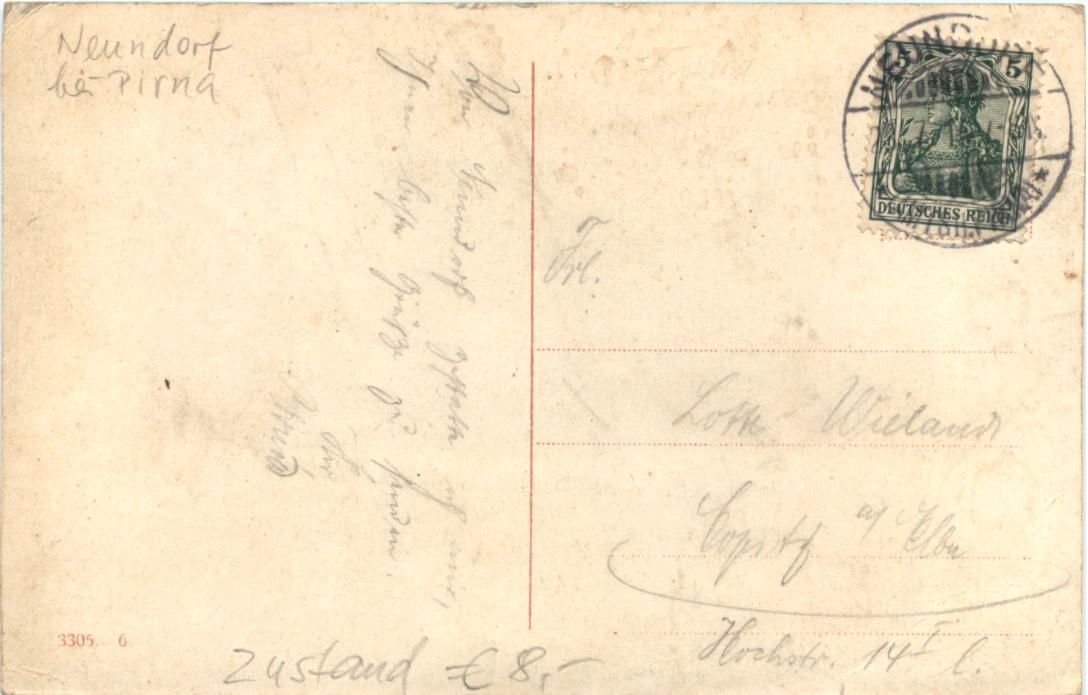 Neundorf
bei Pirna
Von Neundorf gestatte ich mir,
Ihnen beste Grüße zu senden.
Ihr
5 5
DEUTSCHES REICH
Frl.
Lotte Wieland
Copitz a/ Elbe
Hochstr. 14 I l.
3305. 6
Zustand € 8,-